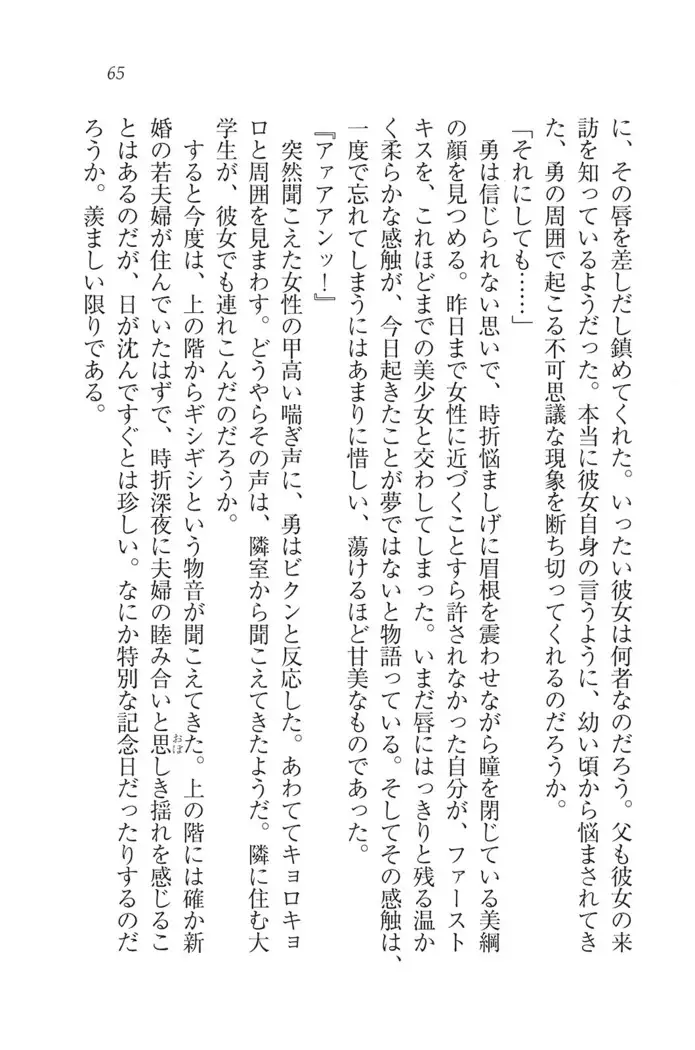 65
に、その唇を差しだし鎮めてくれた。いったい彼女は何者なのだろう。父も彼女の来
訪を知っているようだった。本当に彼女自身の言うように、幼い頃から悩まされてき
た、勇の周囲で起こる不可思議な現象を断ち切ってくれるのだろうか。
「それにしても……」
勇は信じられない思いで、時折悩ましげに眉根を震わせながら瞳を閉じている美綱
の顔を見つめる。昨日まで女性に近づくことすら許されなかった自分が、ファースト
キスを、これほどまでの美少女と交わしてしまった。いまだ唇にはっきりと残る温か
く柔らかな感触が、今日起きたことが夢ではないと物語っている。そしてその感触は、
一度で忘れてしまうにはあまりに惜しい、蕩けるほど甘美なものであった。
『アァアアンッ！』
突然聞こえた女性の甲高い喘ぎ声に、勇はビクンと反応した。あわててキョロキョ
ロと周囲を見まわす。どうやらその声は、隣室から聞こえてきたようだ。隣に住む大
学生が、彼女でも連れこんだのだろうか。
すると今度は、上の階からギシギシという物音が聞こえてきた。上の階には確か新
婚の若夫婦が住んでいたはずで、時折深夜に夫婦の睦み合いと思しき揺れを感じるこ
おぼ
とはあるのだが、日が沈んですぐとは珍しい。なにか特別な記念日だったりするのだ
ろうか。羨ましい限りである。